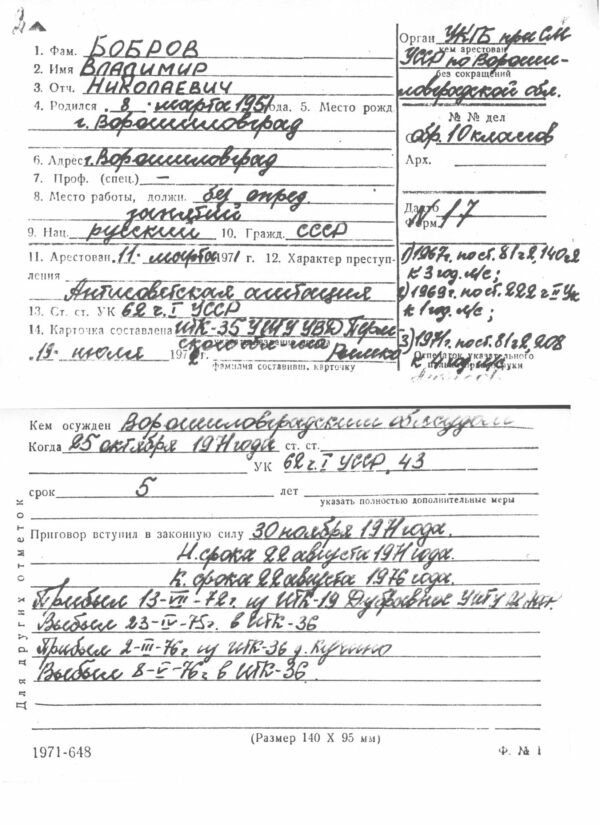 1. Фам. БОБРОВ
2. Имя ВЛАДИМИР
3. Отч. НИКОЛАЕВИЧ
4. Родился 8 марта 1951 года. 5. Место рожд
г. Ворошиловград
6. Адрес г. Ворошиловград
7. Проф. (спец.) —
8. Место работы, должн. без опред.
занятий
9. Нац. русский 10. Гражд. СССР
11. Арестован 11 марта 1971 г. 12. Характер преступ-
ления
Антисоветская агитация
13. Ст. ст. УК 62 ч. I УССР
14. Карточка составлена ИТК-35 УИТУ УВД Перм
ского
19 июля 197 г.
фамилия составивш. карточку
Орган УКГБ при СМ
кем арестован
УССР по Вороши-
без сокращений
ловградской обл.
№ № дел
обр. 10 классов
Арх.
N 17
Форм.
1) 1967г. по ст. 81 ч 2, 140 ч 2
к 3 год. л/с;
2) 1969г. по ст. 222 ч II УК
к 1 год. л/с;
3) 1971г. по ст. 81 ч 2, 208
Отпечаток указательного
Кем осужден Ворошиловградским облсудом
Когда 25 октября 1971 года ст. ст.
УК 62 ч. I УССР, 43
срок 5 лет
указать полностью дополнительные меры
Приговор вступил в законную силу 30 ноября 1971 года.
Н. срока 22 августа 1971 года.
К. срока 22 августа 1976 года.
Прибыл 13-VII-72г. из ИТК-19 Дубравное УИТУ
Выбыл 23-IV-75г. в ИТК-36
Прибыл 2-III-76г из ИТК-36 д. Кучино
Выбыл 8-V-76г в ИТК-36
Для других отметок
(Размер 140 X 95 мм)
1971-648
Ф. № 1